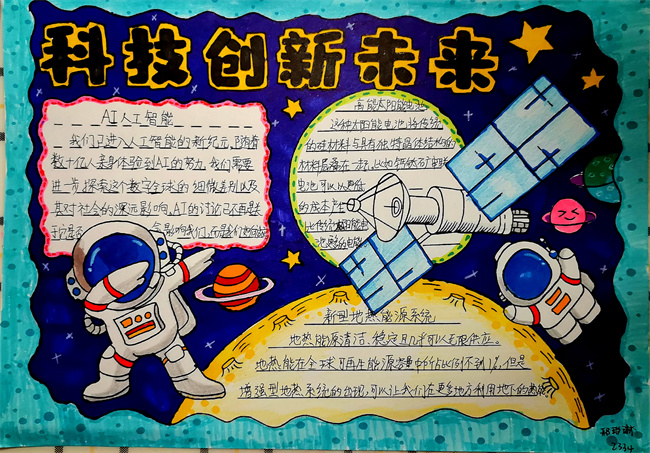 科技创新未来
AI人工智能
我们已进入人工智能的新纪元,随着
数十亿人亲身体验到AI的努力,我们需要
进一步探索这个数字全球的细微差别以及
其对社会的深远影响,AI的讨论已不再是关
于是否会影响我们,而是
高能太阳能电池
这种太阳能电池将传统
的硅材料与具有独特晶体结构的
材料层叠在一起,比如钙钛矿
电池可以以更低
的成本
比传统
新型地热能源系统
地热能源清洁、稳定且几乎可以无限供应。
地热能在全球可再生能源容量中所占比例不到1%,但是
增强型地热系统的出现,可以让我们在更多地方利用地下的热能
2334